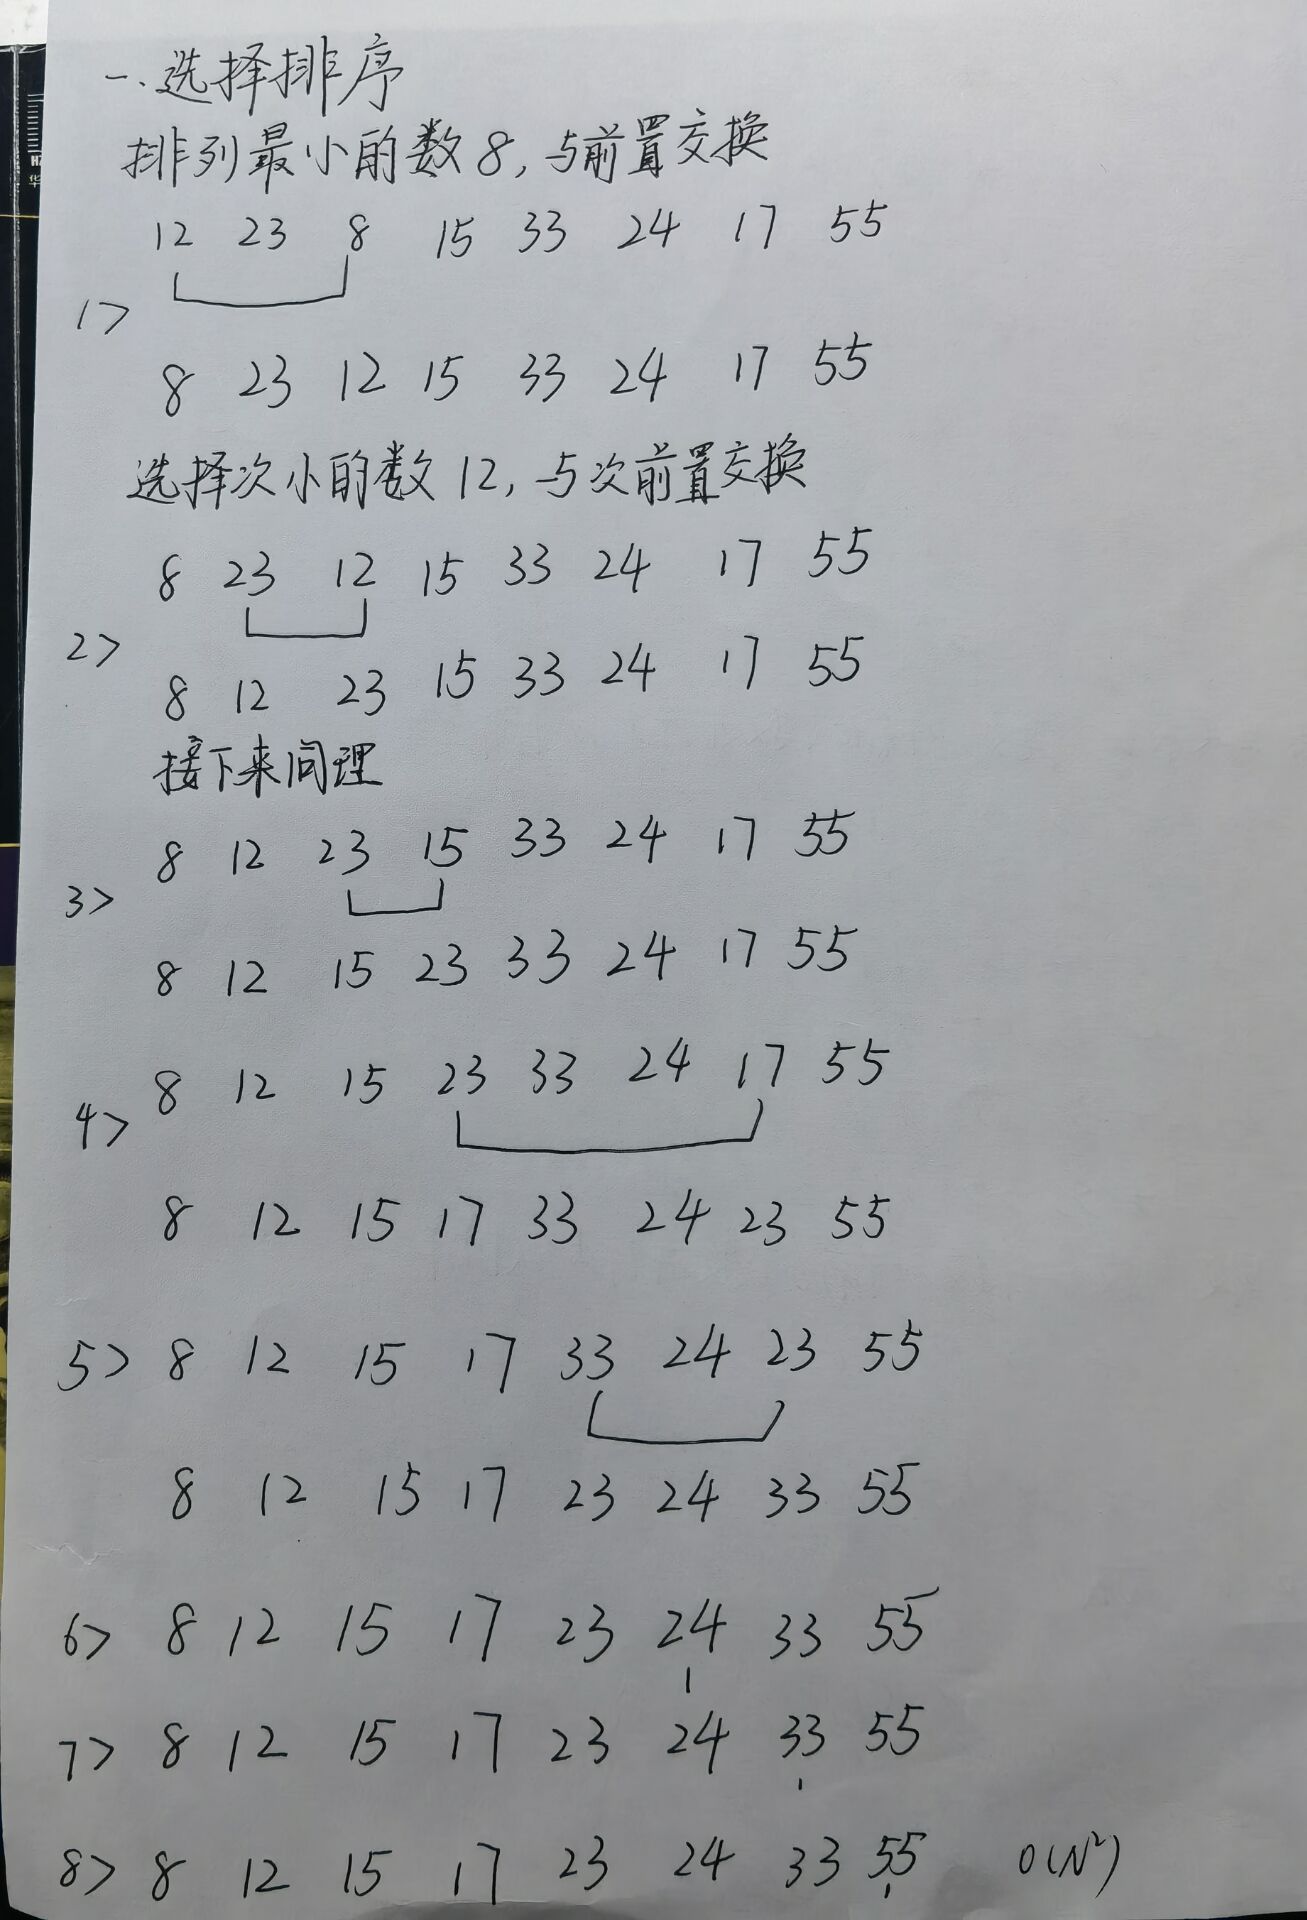 一.选择排序
排列最小的数8,与前置交换
12 23 8 15 33 24 17 55
1>
8 23 12 15 33 24 17 55
选择次小的数12,与次前置交换
8 23 12 15 33 24 17 55
2>
8 12 23 15 33 24 17 55
接下来同理
8 12 23 15 33 24 17 55
3>
8 12 15 23 33 24 17 55
8 12 15 23 33 24 17 55
4>
8 12 15 17 33 24 23 55
5> 8 12 15 17 33 24 23 55
8 12 15 17 23 24 33 55
6> 8 12 15 17 23 24 33 55
7> 8 12 15 17 23 24 33 55
8> 8 12 15 17 23 24 33 55 O(N²)